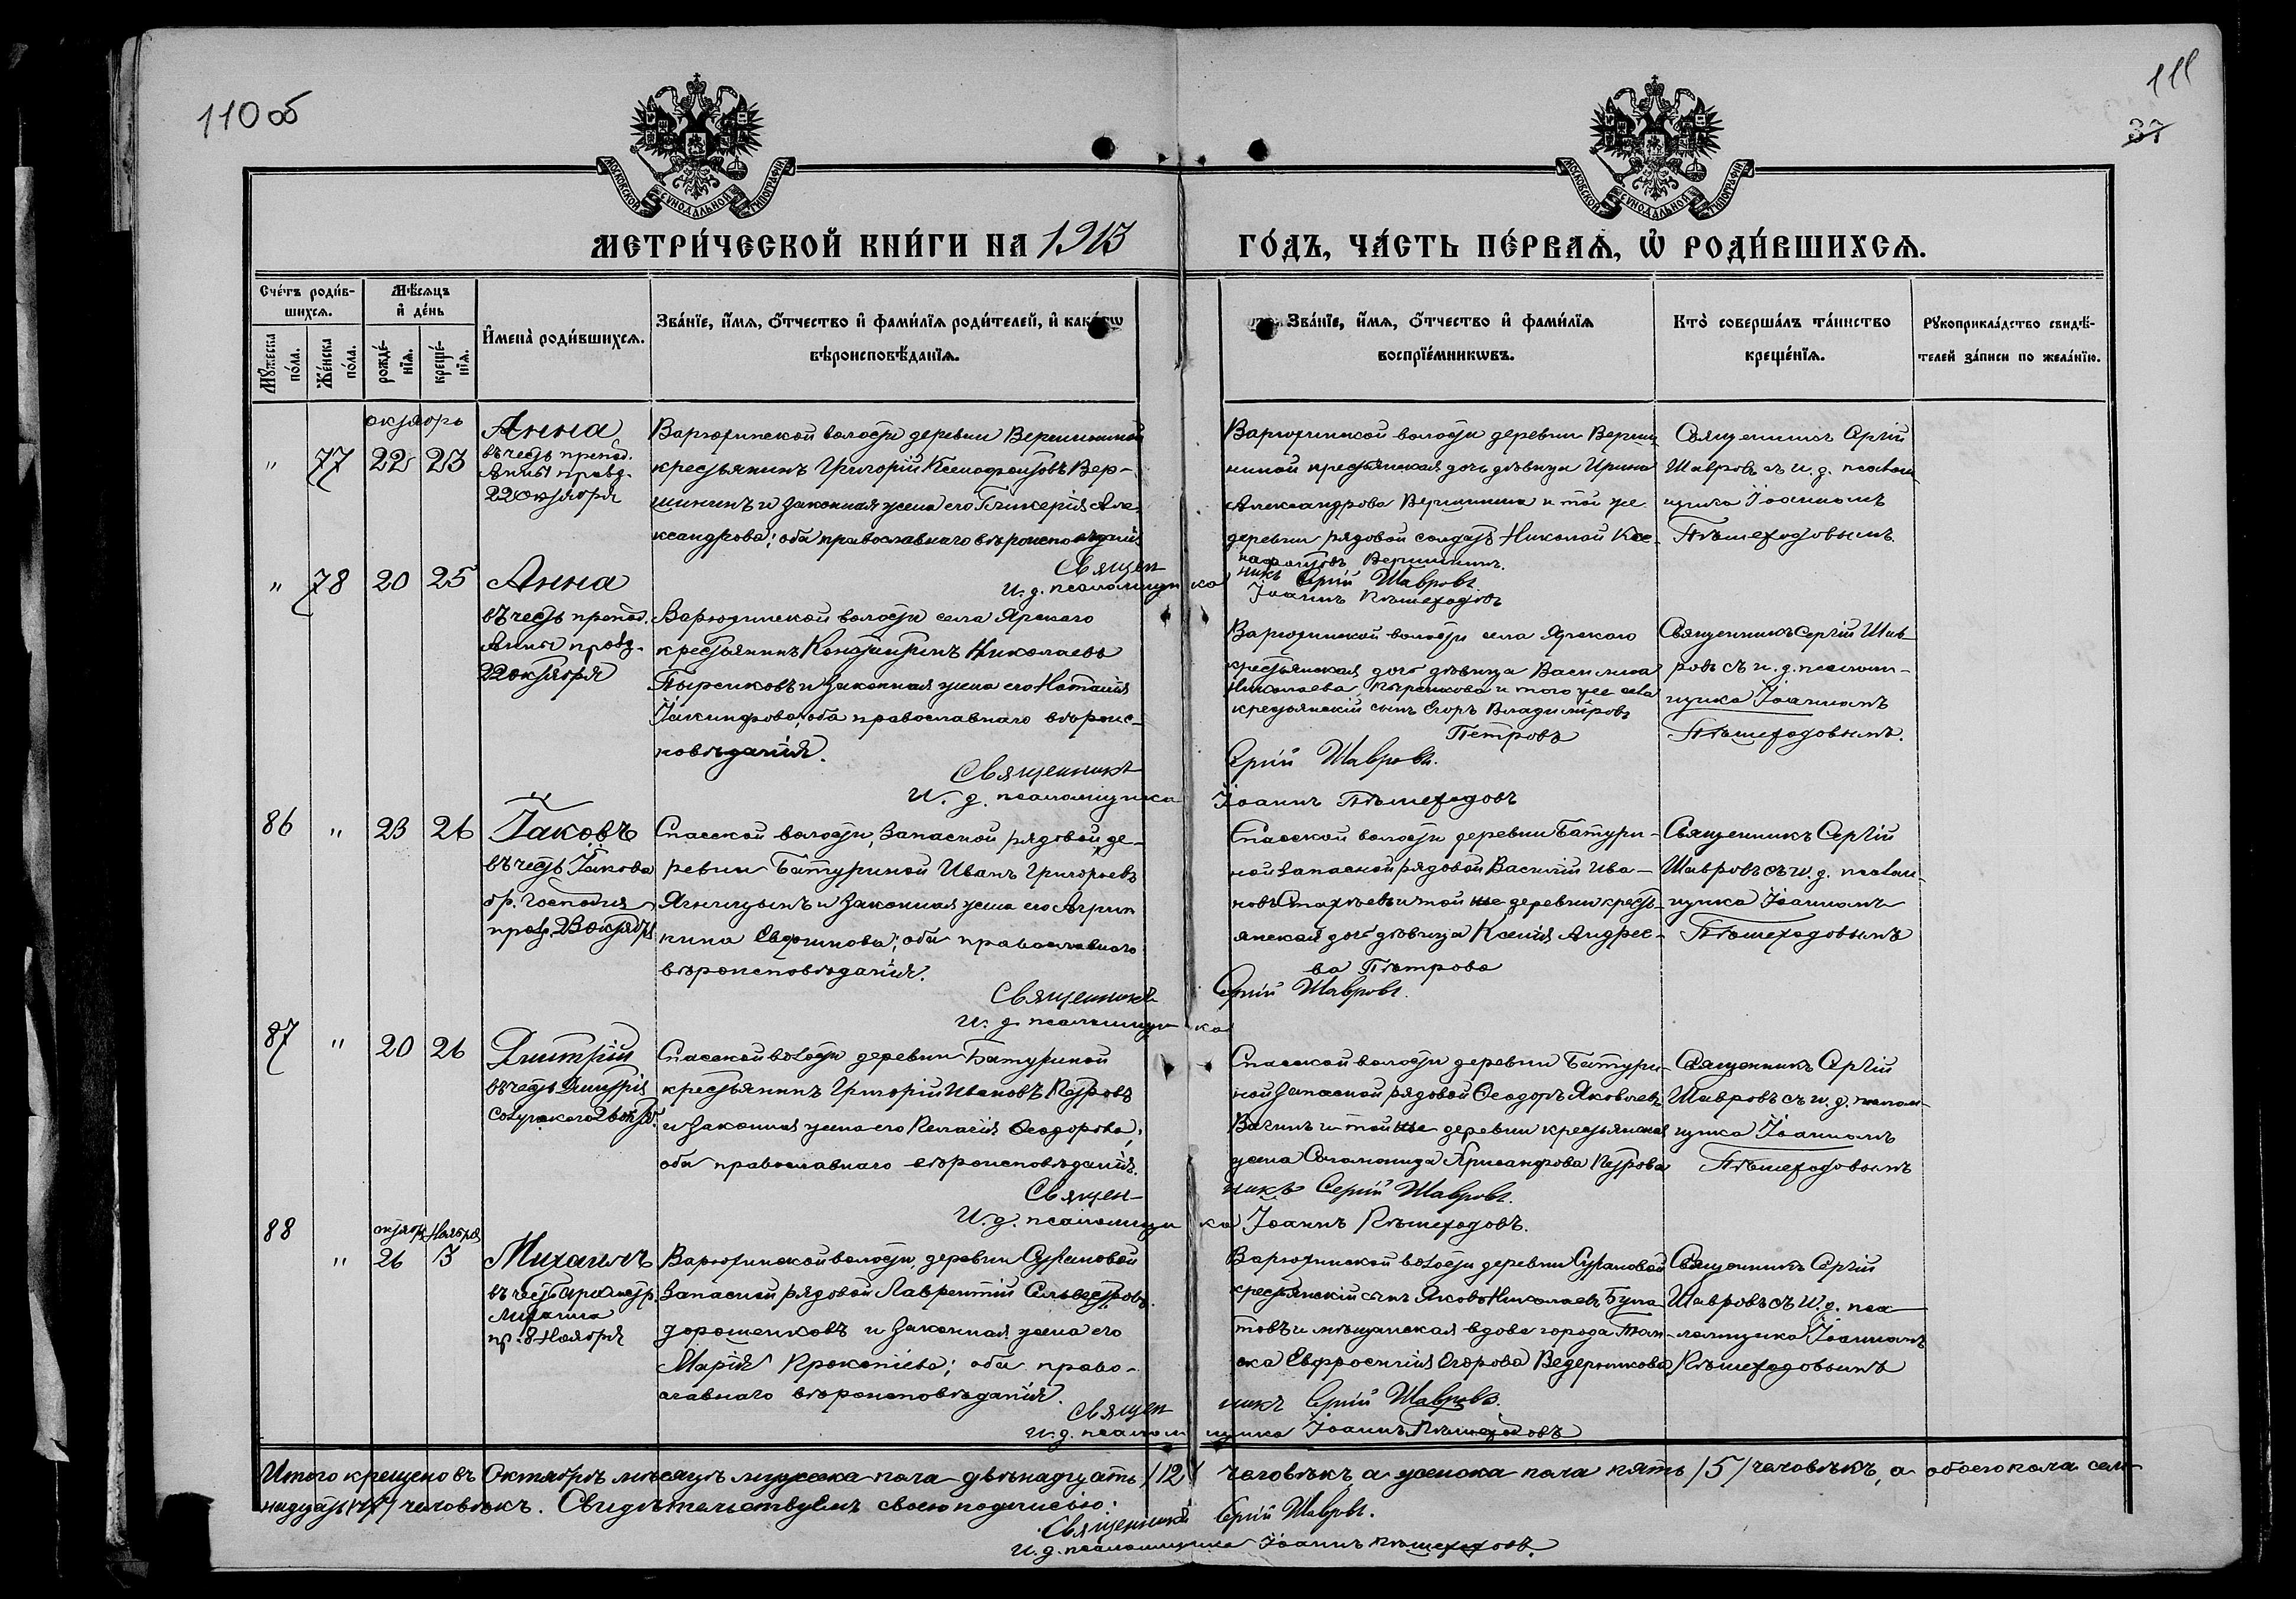 110 об
111
37
МОСКОВСКОЙ СѴНОДАЛЬНОЙ ТИПОГРАФІИ
МОСКОВСКОЙ СѴНОДАЛЬНОЙ ТИПОГРАФІИ
МЕТРИ́ЧЕСКОЙ КНИ́ГИ НА 1913 ГО́ДЪ, ЧА́СТЬ ПЕ́РВАѦ, Ѡ҆ РОДИ́ВШИХСѦ.
Сче́тъ роди́в-
шихсѧ.
Мѣ́сѧцъ
и҆ де́нь
Мꙋ́жеска по́ла.
Же́нска по́ла.
рожде́-
нїѧ.
креще́-
нїѧ.
И҆мена̀ роди́вшихсѧ.
Зва́нїе, и҆́мѧ, ѻ҆́тчество и҆ фами́лїѧ роди́телей, и҆ како́гѡ
вѣроисповѣ́данїѧ.
Зва́нїе, и҆́мѧ, ѻ҆́тчество и҆ фами́лїѧ
воспрїе́мникѡвъ.
Кто̀ соверша́лъ та́инство
креще́нїѧ.
Рꙋкоприкла́дство свидѣ́-
телей за́писи по жела́нїю.
октябрь
" 77 22 23
Анна
въ честь препод.
Анны празд.
22 октября
Варюхинской волости деревни Вершининой
крестьянинъ Григорій Ксенофонтовъ Вер-
шининъ и законная жена его Гликерія Але-
ксандрова; оба православнаго вѣроисповѣданія
Варюхинской волости деревни Верши-
ниной крестьянская дочь дѣвица Ирина
Александрова Вершинина и той же
деревни рядовой солдатъ Николай Ксе-
нофонтовъ Вершининъ.
Священникъ Сергій
Шавровъ съ и. д. псалом-
щика Іоанномъ
Пѣшеходовымъ
Священникъ Сергій Шавровъ.
И. д. псаломщика Іоаннъ Пѣшеходовъ
" 78 20 25
Анна
въ честь препод.
Анны празд.
22 октября
Варюхинской волости села Ярскаго
крестьянинъ Константинъ Николаевъ
Пырсиковъ и законная жена его Наталія
Іакинфова; оба православнаго вѣроис-
повѣданія.
Варюхинской волости села Ярского
крестьянская дочь дѣвица Василиса
Николаева Пырсикова и того же села
крестьянскій сынъ Егоръ Владиміровъ
Петровъ
Священникъ Сергій Шав-
ровъ съ и. д. псалом-
щика Іоанномъ
Пѣшеходовымъ.
Священникъ Сергій Шавровъ.
И. д. псаломщика Іоаннъ Пѣшеходовъ
86 " 23 26
Іаковъ
въ честь Іакова
бр. Господня
празд. 23 октября
Спасской волости, запасной рядовой, де-
ревни Батуриной Иванъ Григорьевъ
Ягницынъ и законная жена его Агрип-
пина Евфимова; оба православнаго
вѣроисповѣданія.
Спасской волости деревни Батури-
ной запасной рядовой Василій Ива-
новъ и той же деревни кресть-
янская дочь дѣвица Ксенія Андрее-
ва Петрова
Священникъ Сергій
Шавровъ съ и. д. псалом-
щика Іоанномъ
Пѣшеходовымъ
Священникъ Сергій Шавровъ.
И. д. псаломщика
87 " 20 26
Димитрій
въ честь Димитрія
Солунскаго 26 окт.
Спасской волости деревни Батуриной
крестьянинъ Григорій Ивановъ Петровъ
и законная жена его Пелагія Ѳеодорова;
оба православнаго вѣроисповѣданія.
Спасской волости деревни Батури-
ной запасной рядовой Ѳеодоръ Яковлевъ
Вагинъ и той же деревни крестьянская
жена Саломонида Хрисанфова Петрова
Священникъ Сергій
Шавровъ съ и. д. псалом-
щика Іоанномъ
Пѣшеходовымъ
Священникъ Сергій Шавровъ.
И. д. псаломщика Іоаннъ Пѣшеходовъ.
88
октябрь Ноября
" 26 3
Михаилъ
въ честь архистр.
Михаила
пр. 8 Ноября
Варюхинской волости, деревни Султановой
запасной рядовой Лаврентій Сильвестровъ
Дорошенковъ и законная жена его
Марія Прокопіева; оба право-
славнаго вѣроисповѣданія.
Варюхинской волости деревни Султановой
крестьянскій сынъ Яковъ Николаевъ Була-
товъ и мѣщанская вдова города Том-
ска Евфросинія Егорова Ведерникова
Священникъ Сергій
Шавровъ съ И. д. пса-
ломщика Іоанномъ
Пѣшеходовымъ
Священникъ Сергій Шавровъ.
и. д. псаломщика Іоаннъ Пѣшеходовъ
Итого крещено въ Октябрѣ мѣсяцѣ мужеска пола двѣнадцать /12/ человѣкъ а женска пола пять /5/ человѣкъ, а обоего пола сем-
надцать /17/ человѣкъ. Свидѣтельствуемъ своею подписью:
Священникъ Сергій Шавровъ.
И. д. псаломщика Іоаннъ Пѣшеходовъ.